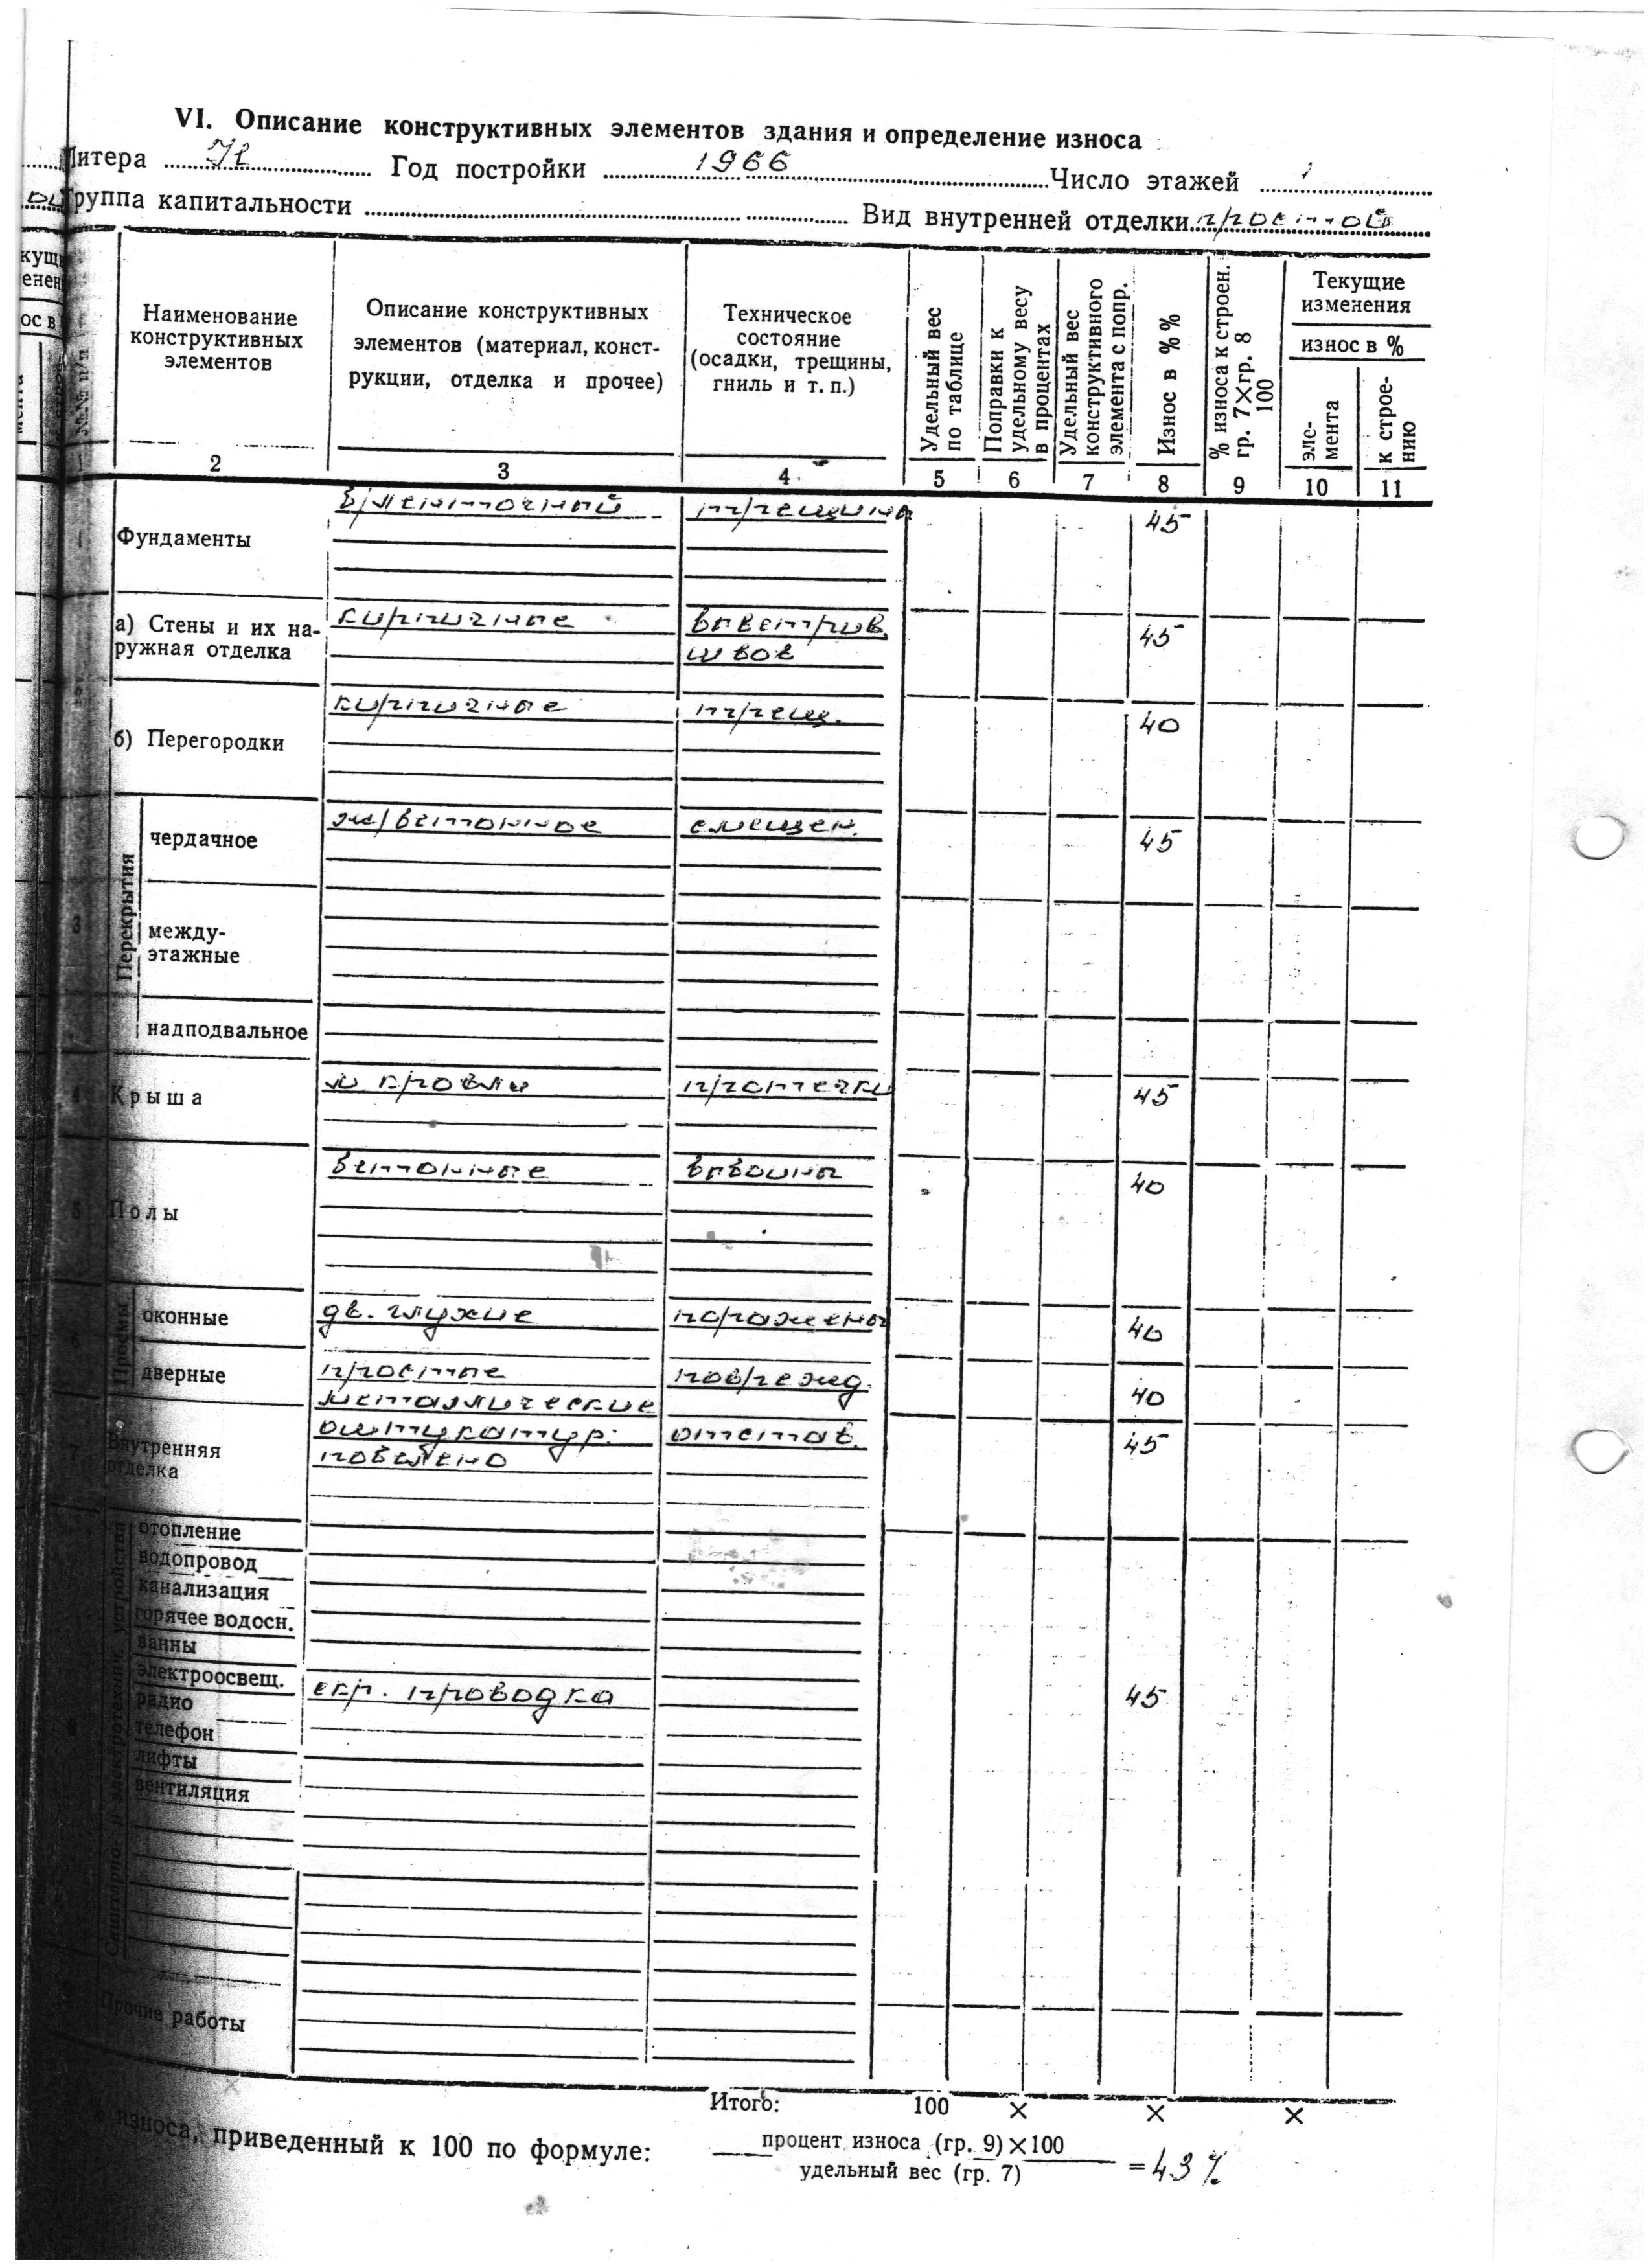 VI. Описание конструктивных элементов здания и определение износа
Литера Год постройки 1966 Число этажей 1
Группа капитальности Вид внутренней отделки простой
кущ
енен
ос в
№№ п/п
Наименование
конструктивных
элементов
Описание конструктивных
элементов (материал, конст-
рукции, отделка и прочее)
Техническое
состояние
(осадки, трещины,
гниль и т. п.)
Удельный вес
по таблице
Поправки к
удельному весу
в процентах
Удельный вес
конструктивного
элемента с попр.
Износ в %%
% износа к строен.
гр. 7×гр. 8
100
Текущие
изменения
износ в %
эле-
мента
к строе-
нию
1 2 3 4 5 6 7 8 9 10 11
1 Фундаменты б/ленточный трещины 45
а) Стены и их на-
ружная отделка
кирпичные выветрив. 45
швов
б) Перегородки кирпичные трещ. 40
3 Перекрытия
чердачное ж/бетонное смещен. 45
между-
этажные
надподвальное
4 Крыша м кровли протечки 45
5 Полы бетонные выбоины 40
6 Проемы
оконные дв. глухие поражены 40
дверные простые поврежд. 40
металлические
7 Внутренняя
отделка
оштукатур: отстав. 45
побелено
8 Санитарно- и электротехнич. устройства
отопление
водопровод
канализация
горячее водосн.
ванны
электроосвещ. скр. проводка 45
радио
телефон
лифты
вентиляция
9 Прочие работы
Итого: 100 × × ×
% износа, приведенный к 100 по формуле: процент износа (гр. 9)×100
удельный вес (гр. 7) = 43 %